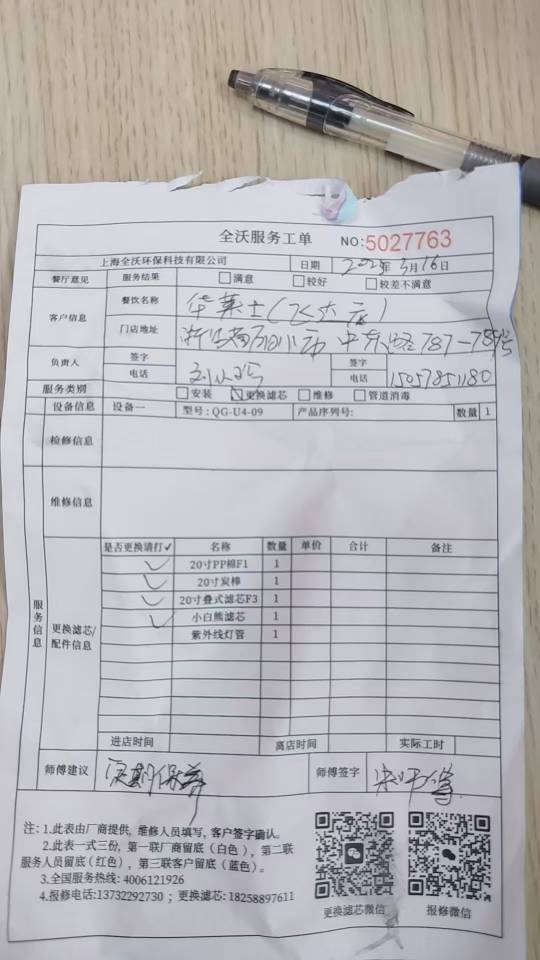 全沃服务工单 NO:5027763
上海全沃环保科技有限公司 日期 3月16日
餐厅意见 服务结果 满意 较好 较差不满意
客户信息 餐饮名称 华莱士(飞大店)
门店地址 中东路787-789号
负责人 签字 签字
电话 电话 15057851180
服务类别 安装 更换滤芯 维修 管道消毒
设备信息 设备一 型号:QG-U4-09 产品序列号: 数量 1
检修信息
维修信息
服务信息
更换滤芯/配件信息
是否更换请打✓ 名称 数量 单价 合计 备注
✓ 20寸PP棉F1 1
✓ 20寸炭棒 1
✓ 20寸叠式滤芯F3 1
✓ 小白熊滤芯 1
紫外线灯管 1
进店时间 离店时间 实际工时
师傅建议 定期保养 师傅签字
注: 1.此表由厂商提供, 维修人员填写, 客户签字确认。
2.此表一式三份, 第一联厂商留底(白色), 第二联
服务人员留底(红色), 第三联客户留底(蓝色)。
3.全国服务热线: 4006121926
4.报修电话:13732292730 ; 更换滤芯: 18258897611
更换滤芯微信 报修微信